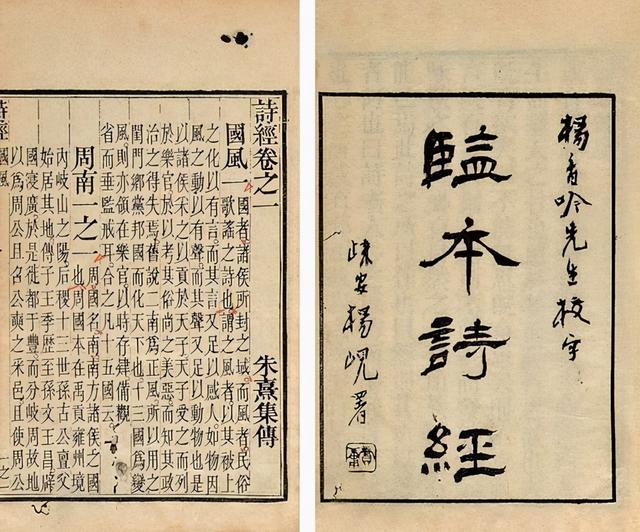 楊香吟先生校字
監本詩經
疎安楊峴署
詩經卷之一
朱熹集傳
國風一
國者諸侯所封之域而風者民俗
歌謠之詩也謂之風者以其被上
之化以有言而其言又足以感人如物因
風之動以有聲而其聲又足以動物也是
以諸侯采之以貢於天子天子受之而列
於樂官於以考其俗尚之美惡而知其政
治之得失焉舊說二南爲正風所以用之
閨門鄉黨邦國而化天下也十三國爲變
風則亦領在樂官以時存肄備觀
省而垂監戒耳合之凡十五國云
周南一之一
周國名南南方諸侯之國
也周國本在禹貢雍州境
內岐山之陽后稷十三世孫古公亶父
始居其地傳子王季歷至孫文王昌辟
國寖廣於是徙都于豐而分岐周故地
以爲周公旦召公奭之采邑且使周公
詩經
國風